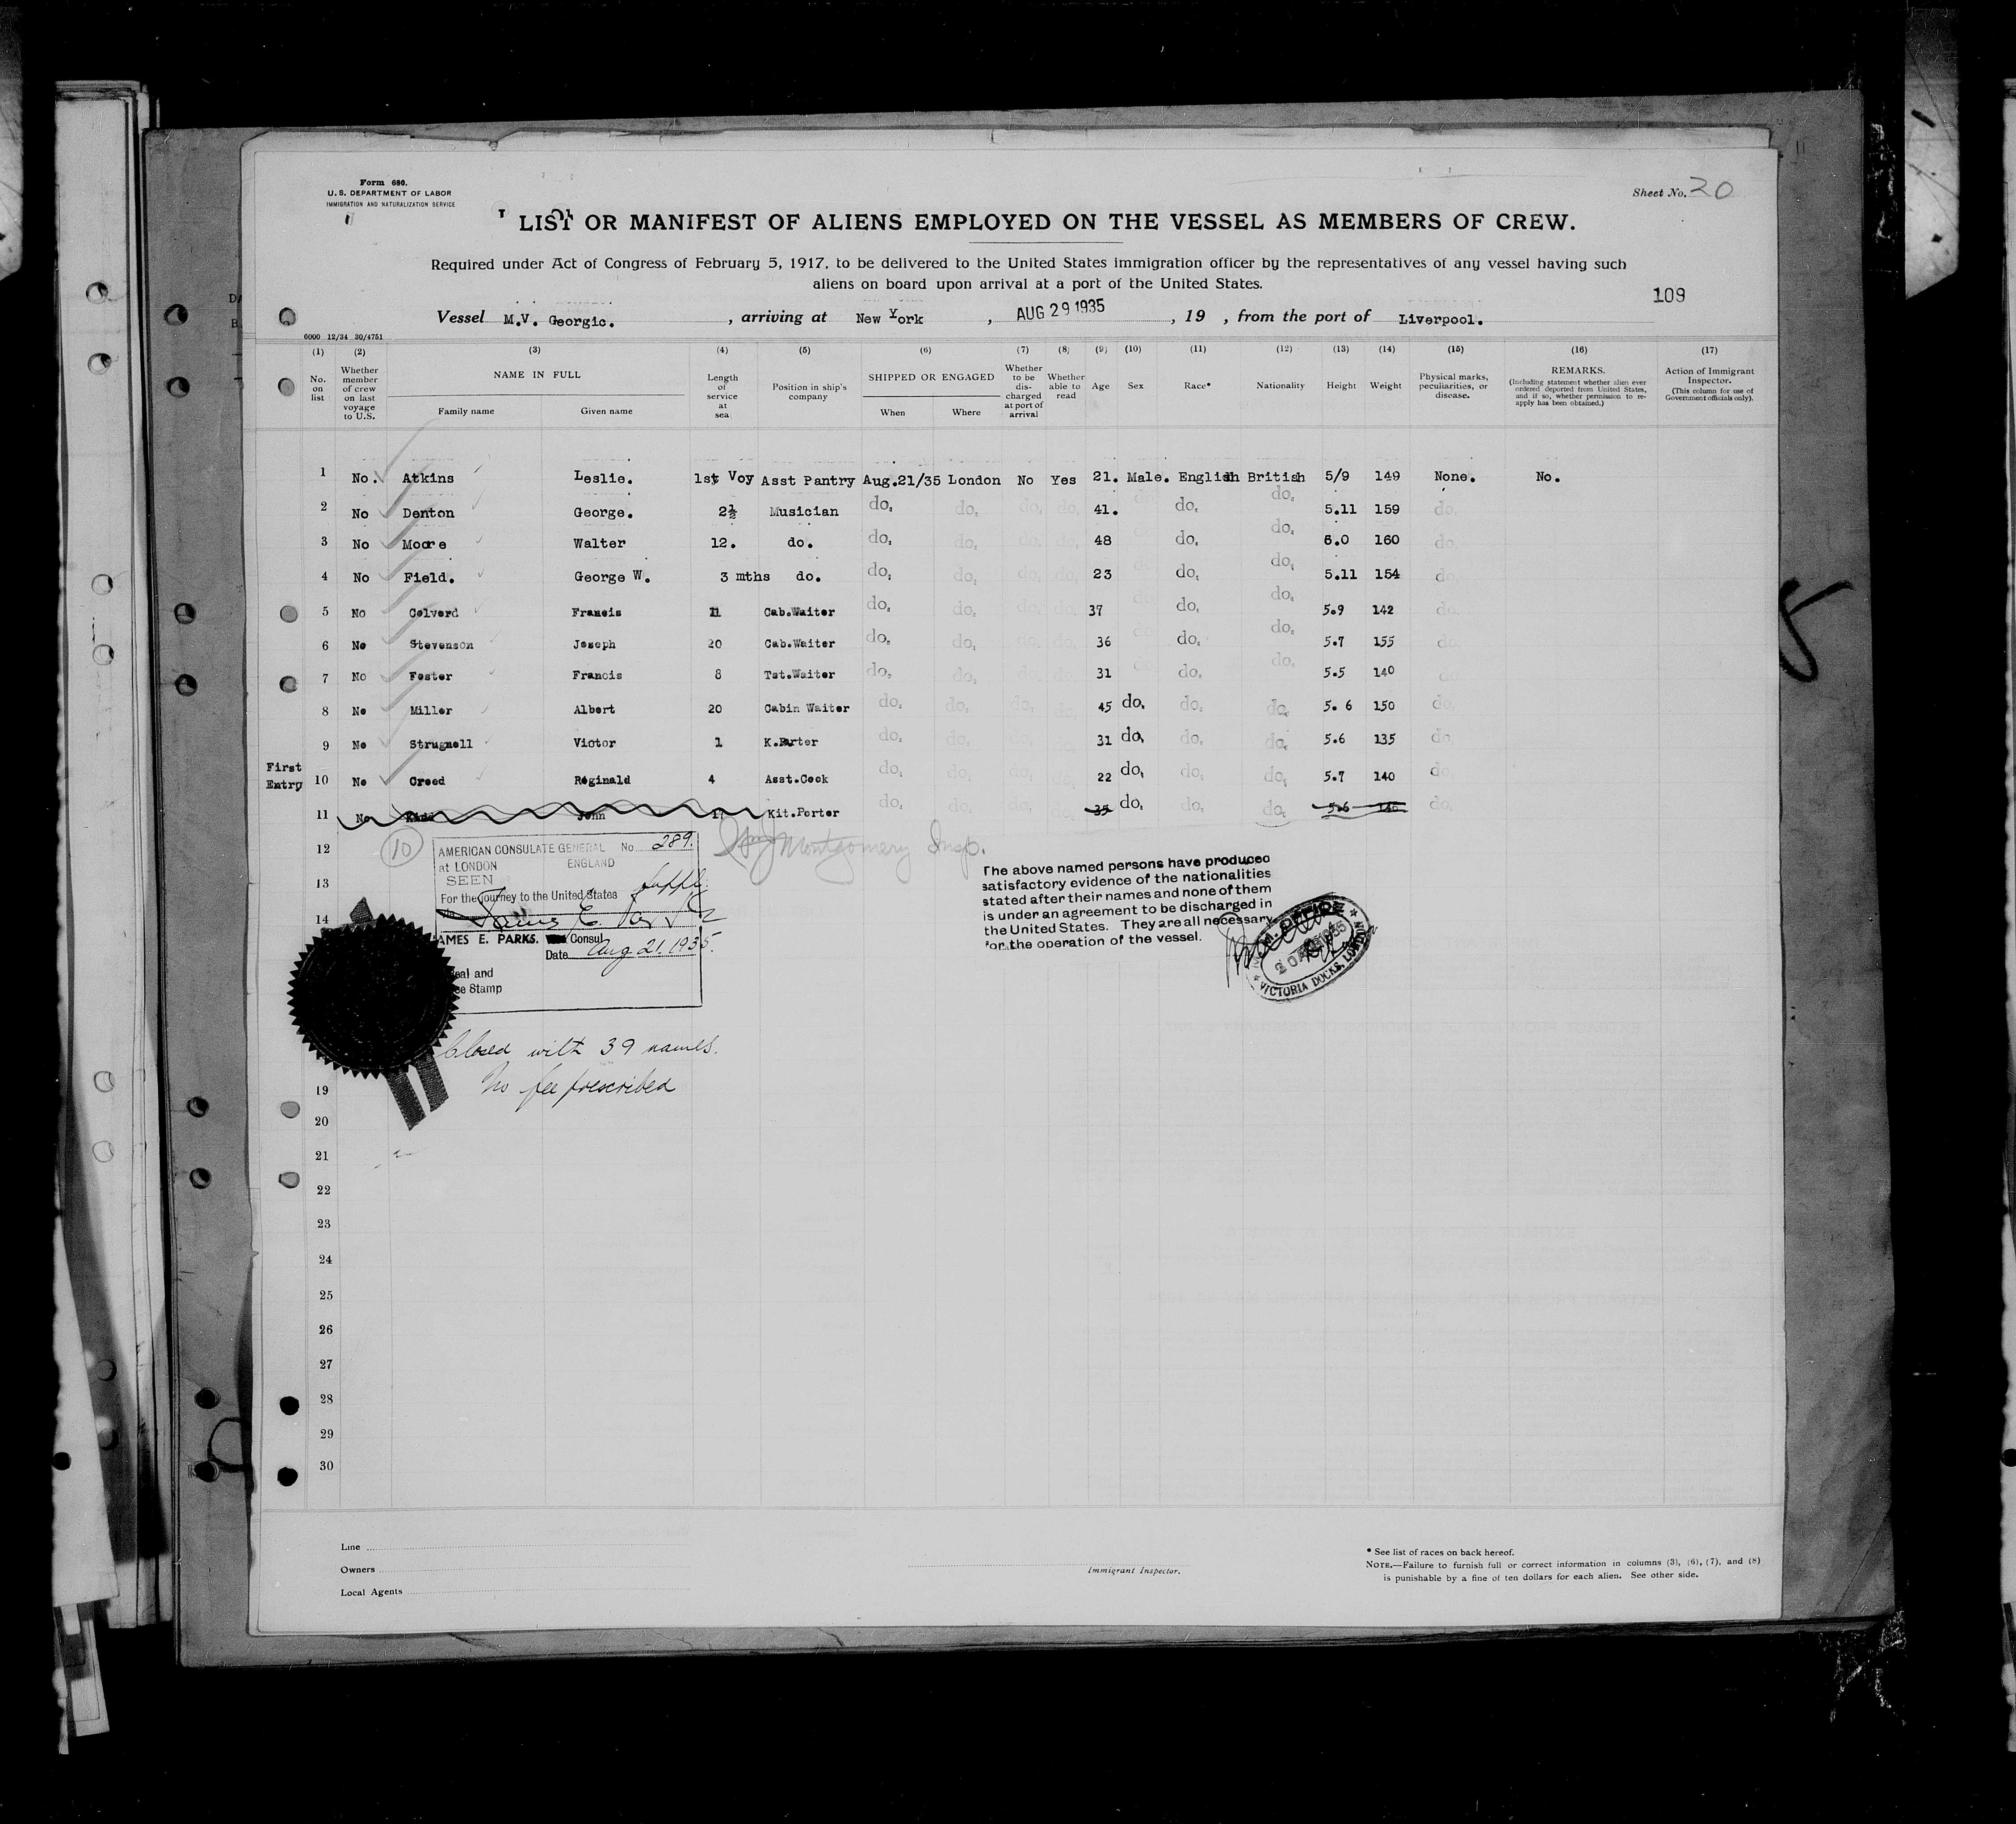 Form 680.
U. S. DEPARTMENT OF LABOR
IMMIGRATION AND NATURALIZATION SERVICE
Sheet No. 20
LIST OR MANIFEST OF ALIENS EMPLOYED ON THE VESSEL AS MEMBERS OF CREW.
Required under Act of Congress of February 5, 1917, to be delivered to the United States immigration officer by the representatives of any vessel having such
aliens on board upon arrival at a port of the United States.
109
Vessel M.V. Georgic. , arriving at New York , AUG 29 1935 , 19 , from the port of Liverpool.
6000 12/34 30/4751
(1) (2) (3) (4) (5) (6) (7) (8) (9) (10) (11) (12) (13) (14) (15) (16) (17)
No. on list
Whether member of crew on last voyage to U.S.
NAME IN FULL
Family name Given name
Length of service at sea
Position in ship's company
SHIPPED OR ENGAGED
When Where
Whether to be discharged at port of arrival
Whether able to read
Age Sex Race* Nationality Height Weight
Physical marks, peculiarities, or disease.
REMARKS.
(Including statement whether alien ever ordered deported from United States, and if so, whether permission to reapply has been obtained.)
Action of Immigrant Inspector.
(This column for use of Government officials only).
1 No. Atkins Leslie. 1st Voy Asst Pantry Aug.21/35 London No Yes 21. Male. English British 5/9 149 None. No.
2 No Denton George. 2½ Musician do. do. do. do. 41. do. do. 5.11 159 do.
3 No Moore Walter 12. do. do. do. do. do. 48 do. do. 6.0 160 do.
4 No Field. George W. 3 mths do. do. do. do. do. 23 do. do. 5.11 154 do.
5 No Colverd Francis 11 Cab.Waiter do. do. do. do. 37 do. do. do. 5.9 142 do.
6 No Stevenson Joseph 20 Cab.Waiter do. do. do. do. 36 do. do. do. 5.7 155 do.
7 No Foster Francis 8 Tst.Waiter do. do. do. do. 31 do. do. do. 5.5 140 do.
8 No Miller Albert 20 Cabin Waiter do. do. do. do. 45 do. do. do. 5.6 150 do.
9 No Strugnell Victor 1 K.Porter do. do. do. do. 31 do. do. do. 5.6 135 do.
First Entry 10 No Creed Reginald 4 Asst.Cook do. do. do. do. 22 do. do. do. 5.7 140 do.
11 No John 17 Kit.Porter do. do. do. do. 35 do. do. do. 5.6 146 do.
12
13
14
10
AMERICAN CONSULATE GENERAL No 289.
at LONDON ENGLAND
SEEN
For the journey to the United States
JAMES E. PARKS. Consul
Date Aug 21 1935.
Seal and
Stamp
Montgomery Insp.
The above named persons have produced
satisfactory evidence of the nationalities
stated after their names and none of them
is under an agreement to be discharged in
the United States. They are all necessary
for the operation of the vessel.
VICTORIA DOCKS, LONDON
Closed with 39 names.
No fee prescribed
19
20
21
22
23
24
25
26
27
28
29
30
Line
Owners
Local Agents
Immigrant Inspector.
* See list of races on back hereof.
NOTE.—Failure to furnish full or correct information in columns (3), (6), (7), and (8)
is punishable by a fine of ten dollars for each alien. See other side.